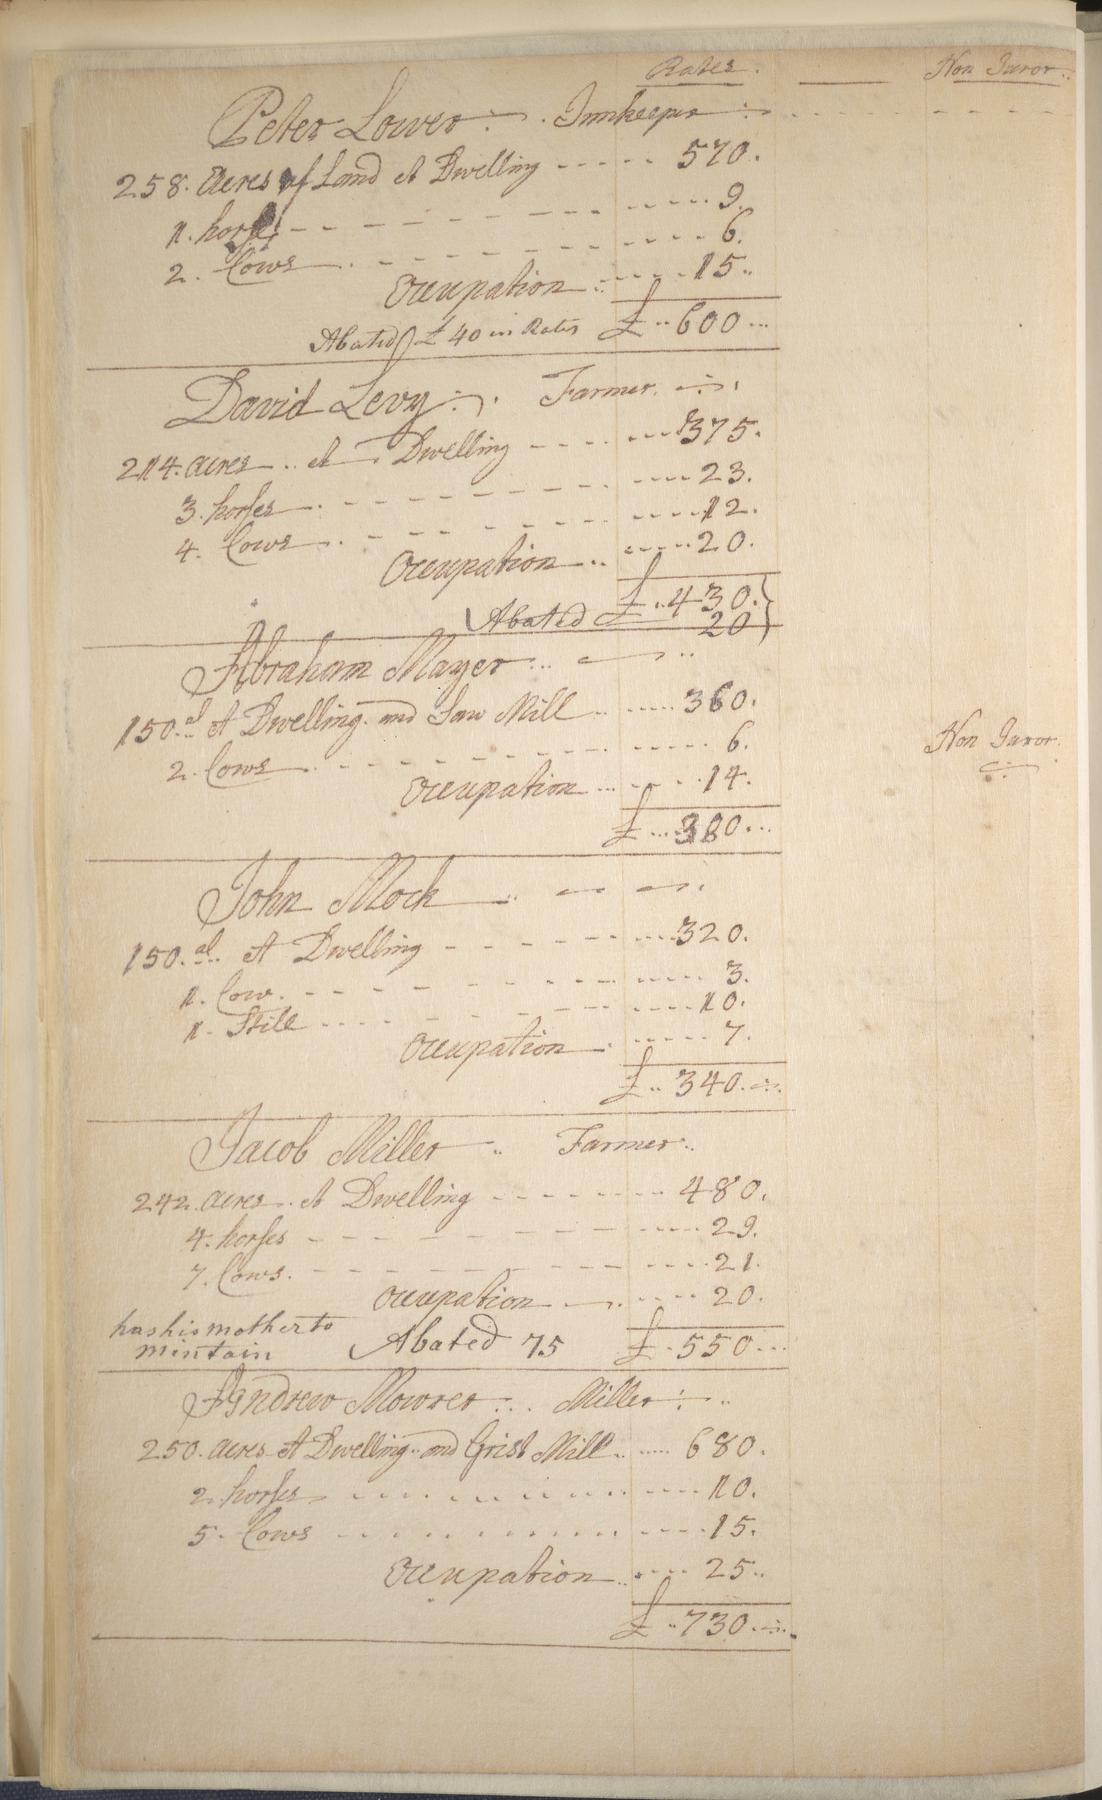 Rates. Non Juror
Peter Lower Innkeeper
258. Acres of Land & Dwelling 570.
1. horse 9.
2. Cows 6.
Occupation 15
Abated £ 40 in Rates £ 600
David Levy Farmer
214. acres & Dwelling 375.
3. horses 23.
4. Cows 12.
Occupation 20.
£ 430.
Abated 20
Abraham Mayer
150. al & Dwelling and Saw Mill 360.
2. Cows 6. Non Juror.
Occupation 14.
£ 380
John Mock
150. al & Dwelling 320.
1. Cow. 3.
1. Still 10.
Occupation 7.
£ 340.
Jacob Miller Farmer
242. acres & Dwelling 480.
4. horses 29.
7. Cows. 21.
Occupation 20.
has his mother to
mintain Abated 75 £ 550
Andrew Mowrer Miller
250. acres & Dwelling and Grist Mill 680.
2. horses 10.
5. Cows 15.
Occupation 25
£ 730